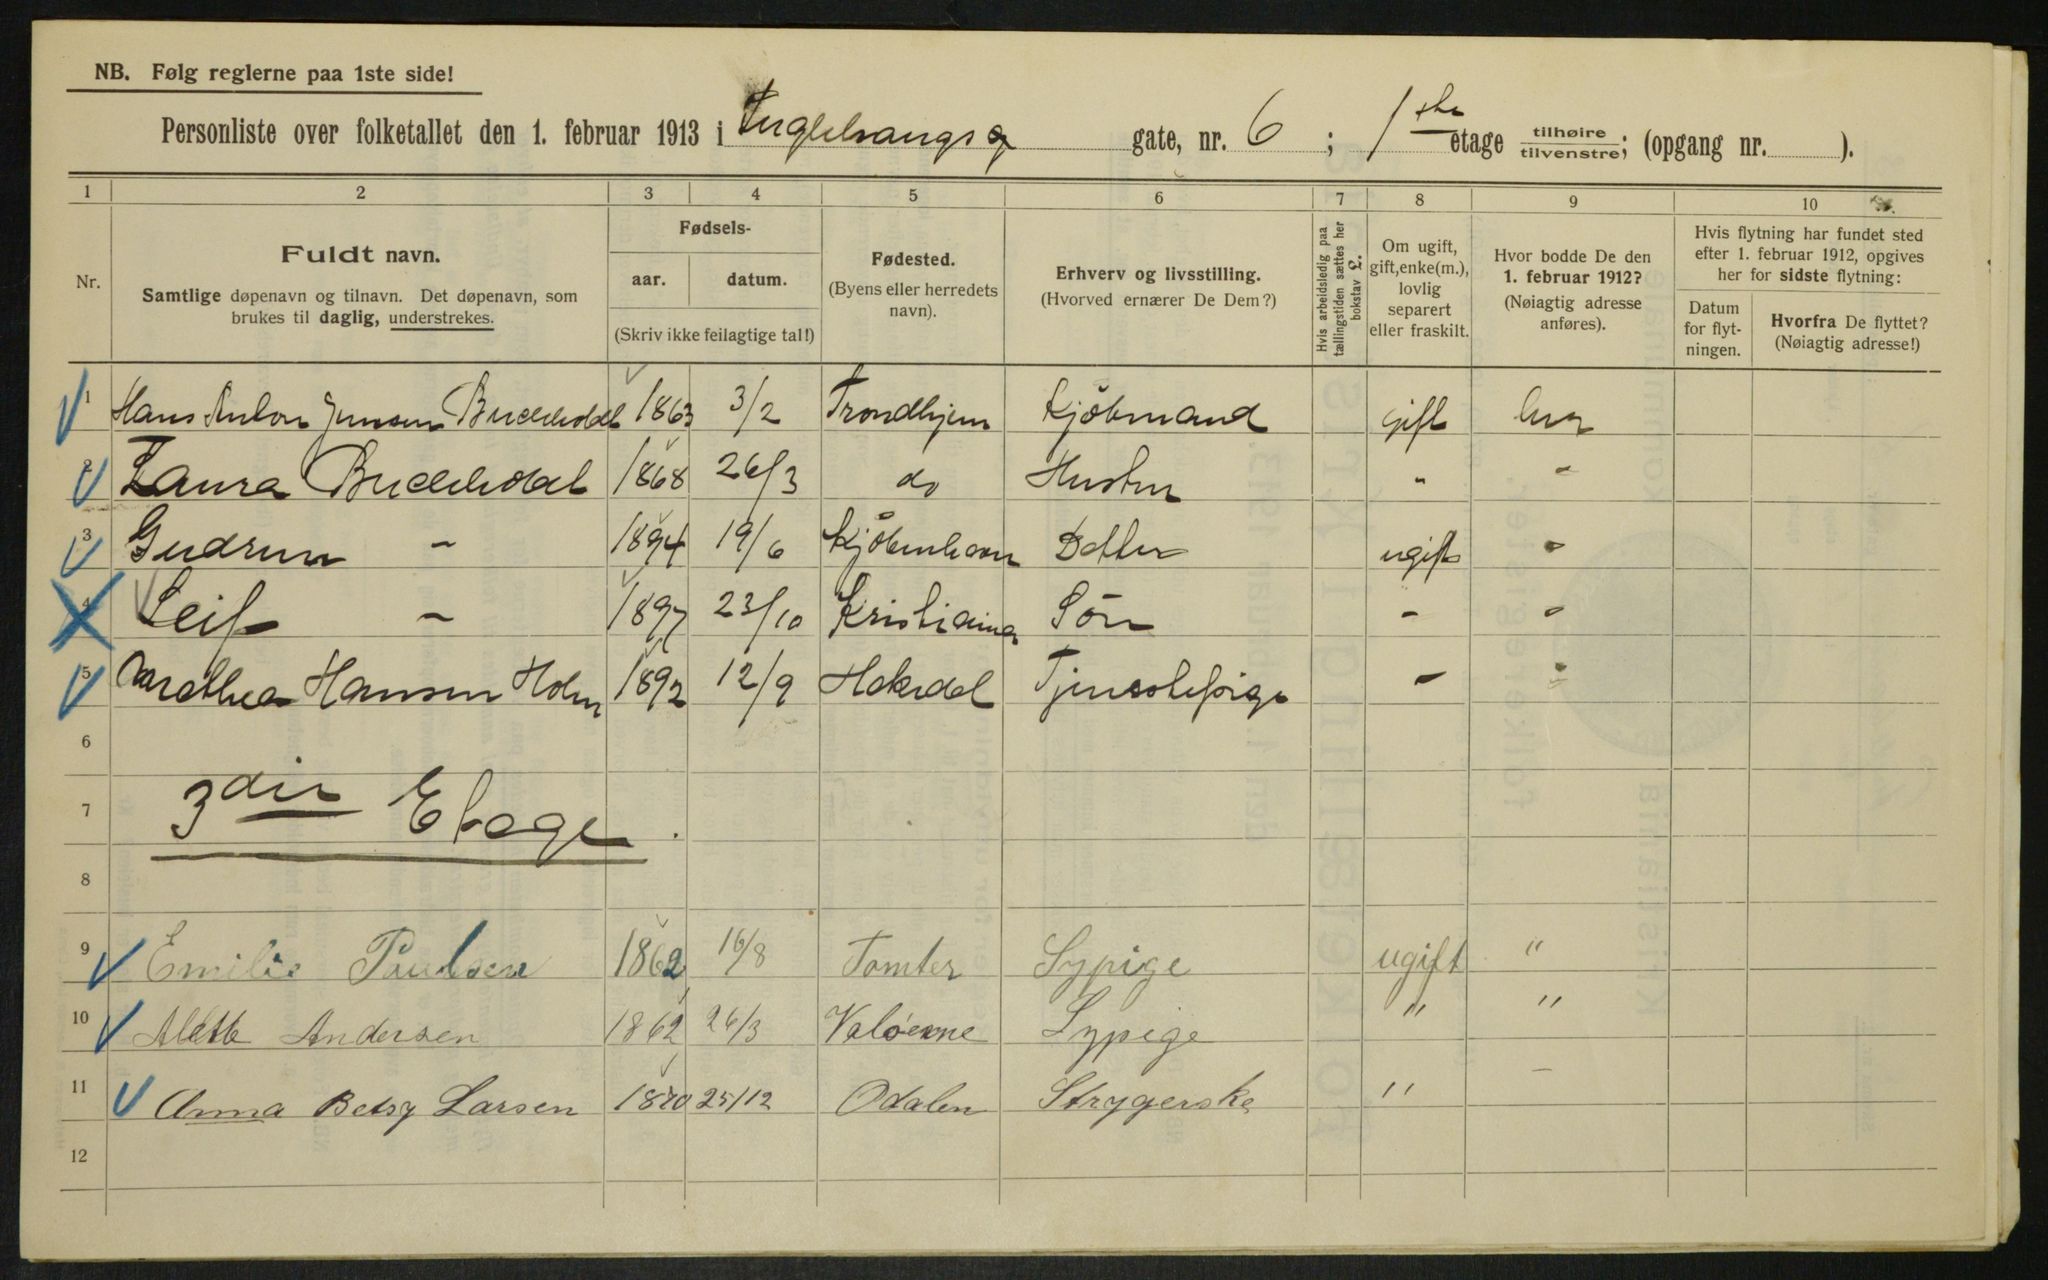 NB. Følg reglerne paa 1ste side!
Personliste over folketallet den 1. februar 1913 i Fuglehaugsg gate, nr. 6 ; 1ste etage tilhøire / tilvenstre; (opgang nr. ).
1 2 3 4 5 6 7 8 9 10
Nr.
Fuldt navn.
Samtlige døpenavn og tilnavn. Det døpenavn, som
brukes til daglig, understrekes.
Fødsels-
aar. datum.
(Skriv ikke feilagtige tal!)
Fødested.
(Byens eller herredets
navn).
Erhverv og livsstilling.
(Hvorved ernærer De Dem?)
Hvis arbeidsledig paa
tællingstiden sættes her
bokstav L.
Om ugift,
gift, enke(m.),
lovlig
separert
eller fraskilt.
Hvor bodde De den
1. februar 1912?
(Nøiagtig adresse
anføres).
Hvis flytning har fundet sted
efter 1. februar 1912, opgives
her for sidste flytning:
Datum
for flyt-
ningen.
Hvorfra De flyttet?
(Nøiagtig adresse!)
1 Hans Anton Jensen 1863 3/2 Trondhjem Kjöbmand gift her
2 Laura 1868 26/3 do Hustru " "
3 Gudrun - 1894 19/6 Kjöbenhavn Datter ugift "
4 Leif - 1897 23/10 Kristiania Sön - "
5 Dorothea Hansen Holm 1892 12/9 Hakedal Tjenestepige - "
6
7 3die Etage.
8
9 Emilie Paulsen 1862 16/8 Tomter Sypige ugift "
10 Alette Andersen 1862 26/3 Valöerne Sypige " "
11 Anna Betsy Larsen 1870 25/12 Odalen Strygerske " -
12